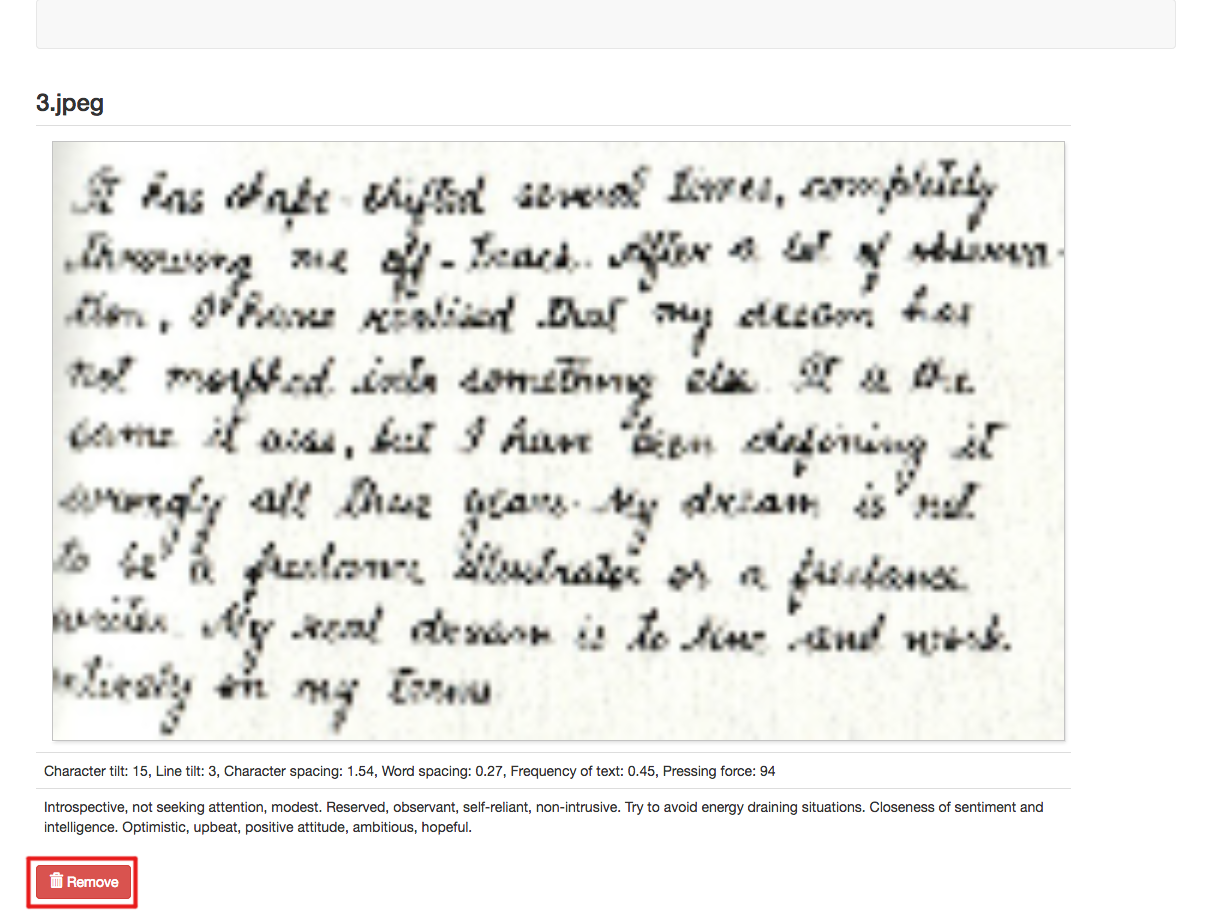 3.jpeg
It has shape-shifted several times, completely
throwing me off-track. After a lot of observa-
tion, I have realised that my dream has
not morphed into something else. It is the
same it was, but I have been defining it
wrongly all these years. My dream is not
to be a freelance illustrator or a freelance
writer. My real dream is to live and work
entirely on my terms
Character tilt: 15, Line tilt: 3, Character spacing: 1.54, Word spacing: 0.27, Frequency of text: 0.45, Pressing force: 94
Introspective, not seeking attention, modest. Reserved, observant, self-reliant, non-intrusive. Try to avoid energy draining situations. Closeness of sentiment and
intelligence. Optimistic, upbeat, positive attitude, ambitious, hopeful.
Remove